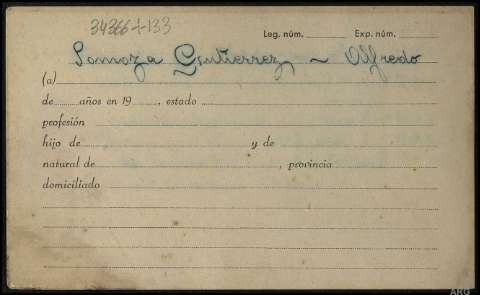 34366+133
Leg. núm. Exp. núm.
Somoza Gutierrez ~ Alfredo
(a)
de años en 19 , estado
profesión
hijo de y de
natural de , provincia
domiciliado
ARG